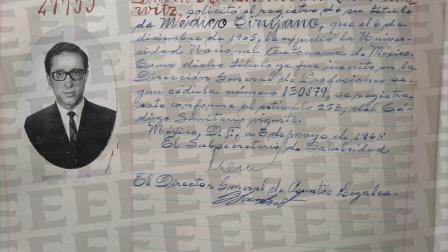 21155
vitz, solicitó el registro de su título
de Médico Cirujano, que el 6 de
diciembre de 1965, le expidió la Univer-
sidad Nacional Autónoma de México.
Como dicho título ya fue inscrito en la
Dirección General de Profesiones se-
gún cédula número 130679, se registra
esto conforme al artículo 253, del Có-
digo Sanitario vigente.
México, D. F., a 8 de mayo de 1968
El Subsecretario de Salubridad
El Director General de Asuntos Legales.